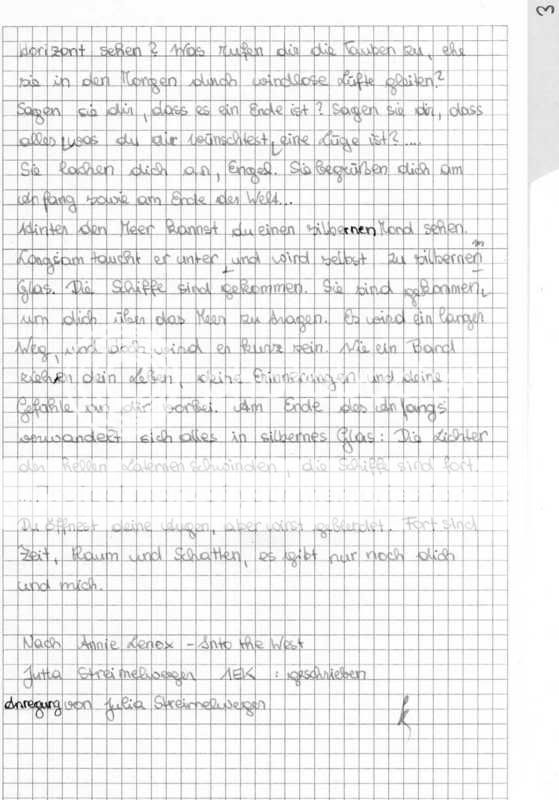 3
Horizont sehen? Was rufen dir die Tauben zu, ehe
sie in den Morgen durch windlose Lüfte gleiten?
Sagen sie dir, dass es ein Ende ist? Sagen sie dir, dass
alles, was du dir wünschtest, eine Lüge ist?....
Sie lachen dich an, Engel. Sie begrüßen dich am
Anfang sowie am Ende der Welt...
Hinter dem Meer kannst du einen silbernen Mond sehen.
Langsam taucht er unter und wird selbst zu silbernem
Glas. Die Schiffe sind gekommen. Sie sind gekommen,
um dich über das Meer zu tragen. Es wird ein langer
Weg, und doch wird er kurz sein. Wie ein Band
ziehen dein Leben, deine Erinnerungen und deine
Gefühle an dir vorbei. Am Ende des Anfangs
verwandelt sich alles in silbernes Glas: Die Lichter
der hellen Laternen schwinden, die Schiffe sind fort.
Du öffnest deine Augen, aber wirst geblendet. Fort sind
Zeit, Raum und Schatten, es gibt nur noch dich
und mich.
Nach Annie Lenox - Into the West
Jutta Streimelweger 1EK : geschrieben
Anregung von Julia Streimelweger